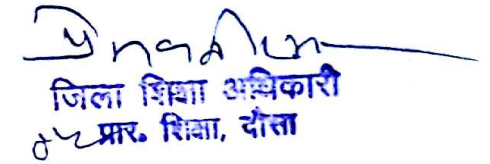 जिला शिक्षा अधिकारी
प्रार. शिक्षा, दौसा